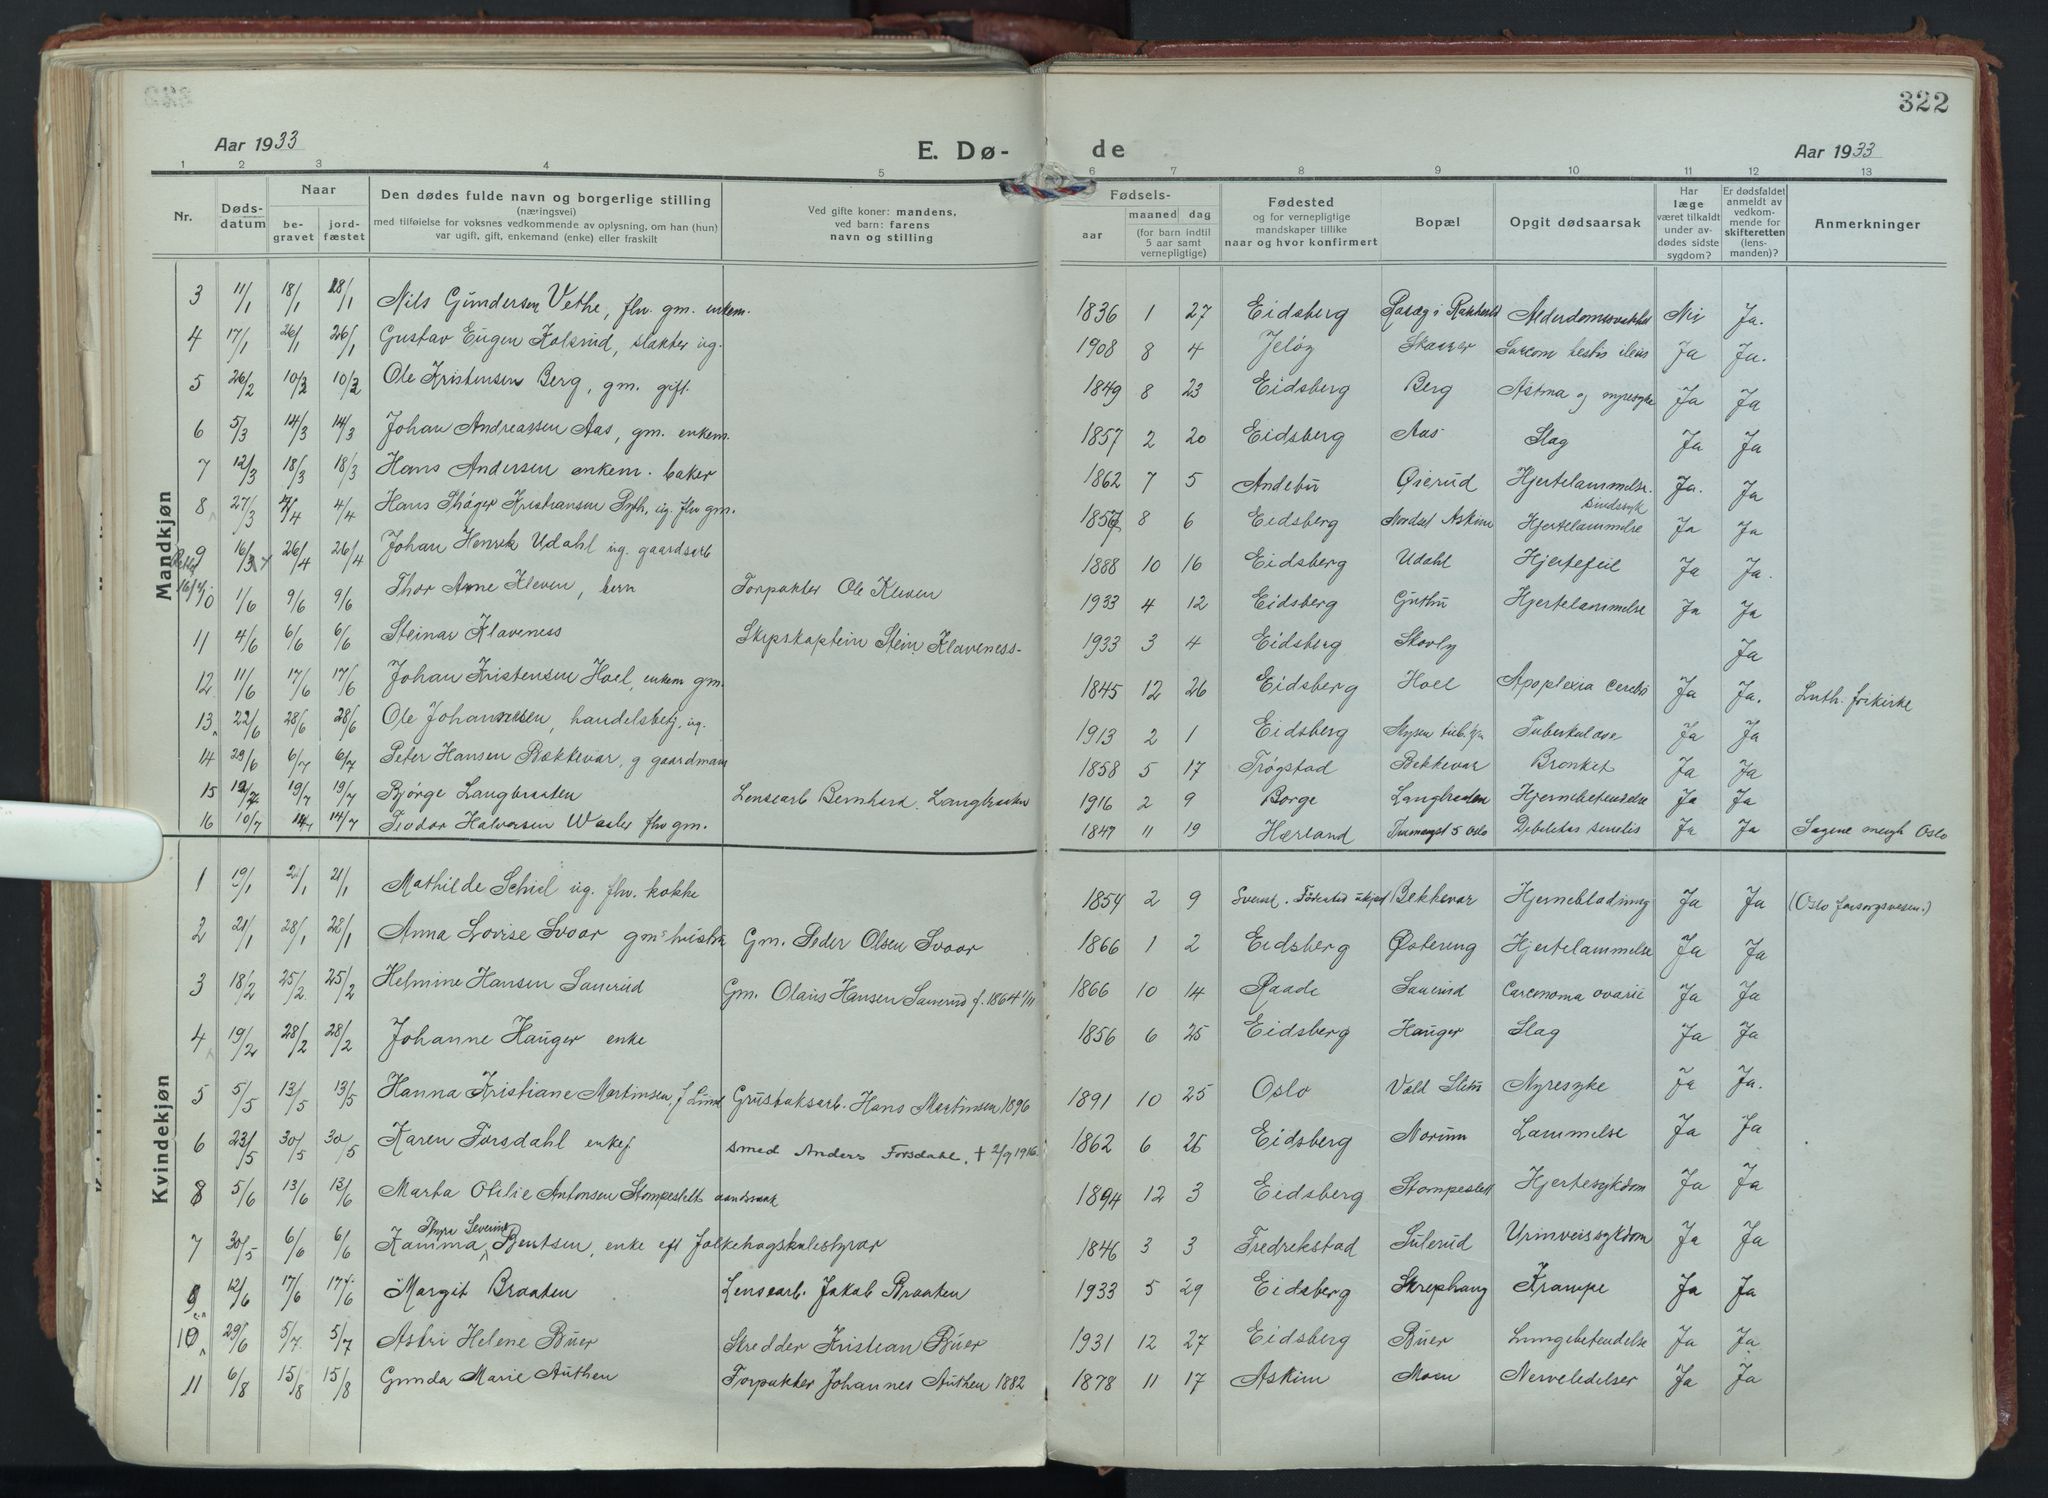 322
Aar 1933 E. Dø- de Aar 1933
1 2 3 4 5 6 7 8 9 10 11 12 13
Nr. Døds-datum Naar be-gravet jord-fæstet Den dødes fulde navn og borgerlige stilling (næringsvei) med tilføielse for voksnes vedkommende av oplysning, om han (hun) var ugift, gift, enkemand (enke) eller fraskilt Ved gifte koner: mandens, ved barn: farens navn og stilling Fødsels- aar maaned dag (for barn indtil 5 aar samt vernepligtige) Fødested og for vernepligtige mandskaper tillike naar og hvor konfirmert Bopæl Opgit dødsaarsak Har læge været tilkaldt under av-dødes sidste sygdom? Er dødsfaldet anmeldt av vedkom-mende for skifteretten (lens-manden)? Anmerkninger
Mandkjøn
3 11/1 18/1 18/1 Nils Gundersen Vethe, flv. gm. enkem. 1836 1 27 Eidsberg Rakkestad Alderdomssvakhet Nei Ja.
4 17/1 26/1 26/1 Gustav Eugen Kolsrud, slakter ug. 1908 8 4 Jeløy Skaarer Sarcom testis ileus Ja Ja.
5 26/2 10/3 10/3 Ole Kristensen Berg, gm. gift. 1849 8 23 Eidsberg Berg Astma og nyresyke Ja Ja
6 5/3 14/3 14/3 Johan Andreassen Aas, gm. enkem. 1857 2 20 Eidsberg Aas Slag Ja Ja
7 12/3 18/3 18/3 Hans Andersen enkem. baker 1862 7 5 Andebu Øierud Hjertelammelse. sindssyk Ja. Ja
8 27/3 4/4 4/4 Hans Thøger Kristiansen ug. flv gm. 1857 8 6 Eidsberg Nordset Askim Hjertelammelse Ja Ja
9 16/3 26/4 26/4 Johan Henrik Udahl ug. gaardsarb 1888 10 16 Eidsberg Udahl Hjertefeil Ja Ja.
10 1/6 9/6 9/6 Thor Arne Kleven, barn Forpakter Ole Kleven 1933 4 12 Eidsberg Guthu Hjertelammelse Ja Ja
11 4/6 6/6 6/6 Steinar Klaveness Skipskaptein Stein Klaveness- 1933 3 4 Eidsberg Skovly Ja
12 11/6 17/6 17/6 Johan Kristensen Hoel, enkem gm. 1845 12 26 Eidsberg Hoel Apoplexia cerebri Ja Ja. Luth. frikirke
13 22/6 28/6 28/6 Ole Johannesen, handelsbetj. ug. 1913 2 1 Eidsberg Mysen Tuberkulose Ja Ja
14 29/6 6/7 6/7 Peter Hansen Bækkevar, g gaardmann 1858 5 17 Trøgstad Bekkevar Bronket Ja Ja
15 12/7 19/7 19/7 Bjørge Langbraaten Lensearb Bernhard Langbraaten 1916 2 9 Borge Langbraaten Hjernebetendelse Ja Ja
16 10/7 14/7 14/7 Teodor Halvorsen Waaler flv gm. 1847 11 19 Hærland 5 Oslo Debilitas senilis Ja Ja Sagene mengh Oslo
Kvindekjøn
1 19/1 21/1 21/1 Mathilde Schiel ug. flv. kokke 1854 2 9 Fødested ukjent Bekkevar Hjerneblødning Ja Ja (Oslo forsorgsvesen.)
2 21/1 28/1 28/1 Anna Lovise Svoor gm's hustru Gm. Peder Olsen Svoor 1866 1 2 Eidsberg Østereng Hjertelammelse Ja Ja
3 18/2 25/2 25/2 Helmine Hansen Sauerud Gm. Olaus Hansen Sauerud f. 1864 1/11 1866 10 14 Raade Sauerud Carcenoma ovarii Ja Ja
4 19/2 28/2 28/2 Johanne Hauger enke 1856 6 25 Eidsberg Hauger Slag Ja Ja
5 5/5 13/5 13/5 Hanna Kristiane Martinsen, f Lund Grustaksarb. Hans Martinsen 1896 1891 10 25 Oslo Vold Sletu Nyresyke Ja Ja.
6 23/5 30/5 30/5 Karen Forsdahl enkef smed Anders Forsdahl, + 2/9 1916 1862 6 25 Eidsberg Norum Lammelse Ja Ja
8 5/6 13/6 13/6 Marta Otilie Antonsen Stompeslett aandsvak 1894 12 3 Eidsberg Stompeslett Hjertesykdom Ja Ja
7 30/5 6/6 6/6 Kamma Thyra Severine Bentsen, enke eft folkehøgskulestyrar 1846 3 3 Fredrekstad Sulerud Urinveissykdom Ja Ja
9 12/6 17/6 17/6 Margit Braaten Lensearb. Jakob Braaten 1933 5 29 Eidsberg Skrephang Krampe Ja Ja
10 29/6 5/7 5/7 Astri Helene Buer Skredder Kristian Buer 1931 12 27 Eidsberg Buer Lungebetendelse Ja Ja
11 6/8 15/8 15/8 Gunda Marie Authen Forpakter Johannes Authen 1882 1878 11 17 Askim Moen Nerveledelser Ja Ja